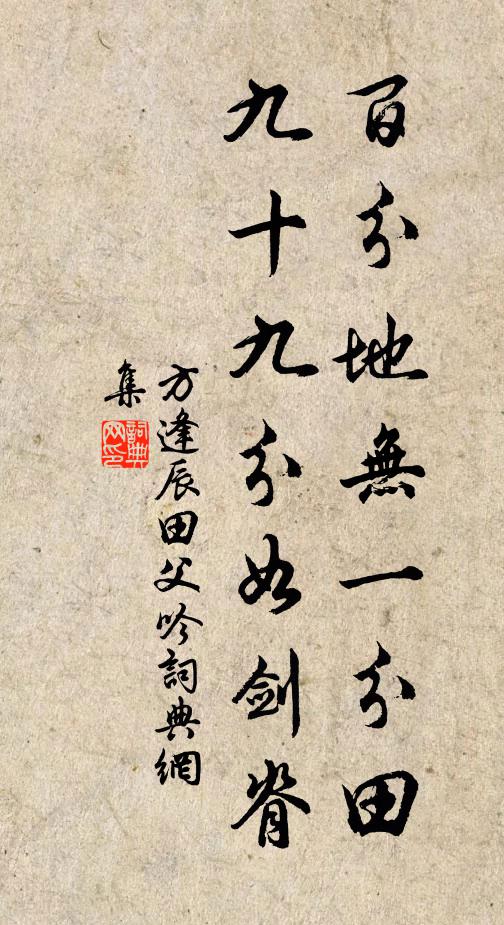 百分地無一分田
九十九分如剑脊
方逢辰田父吟詞典網
集
詞典
网印